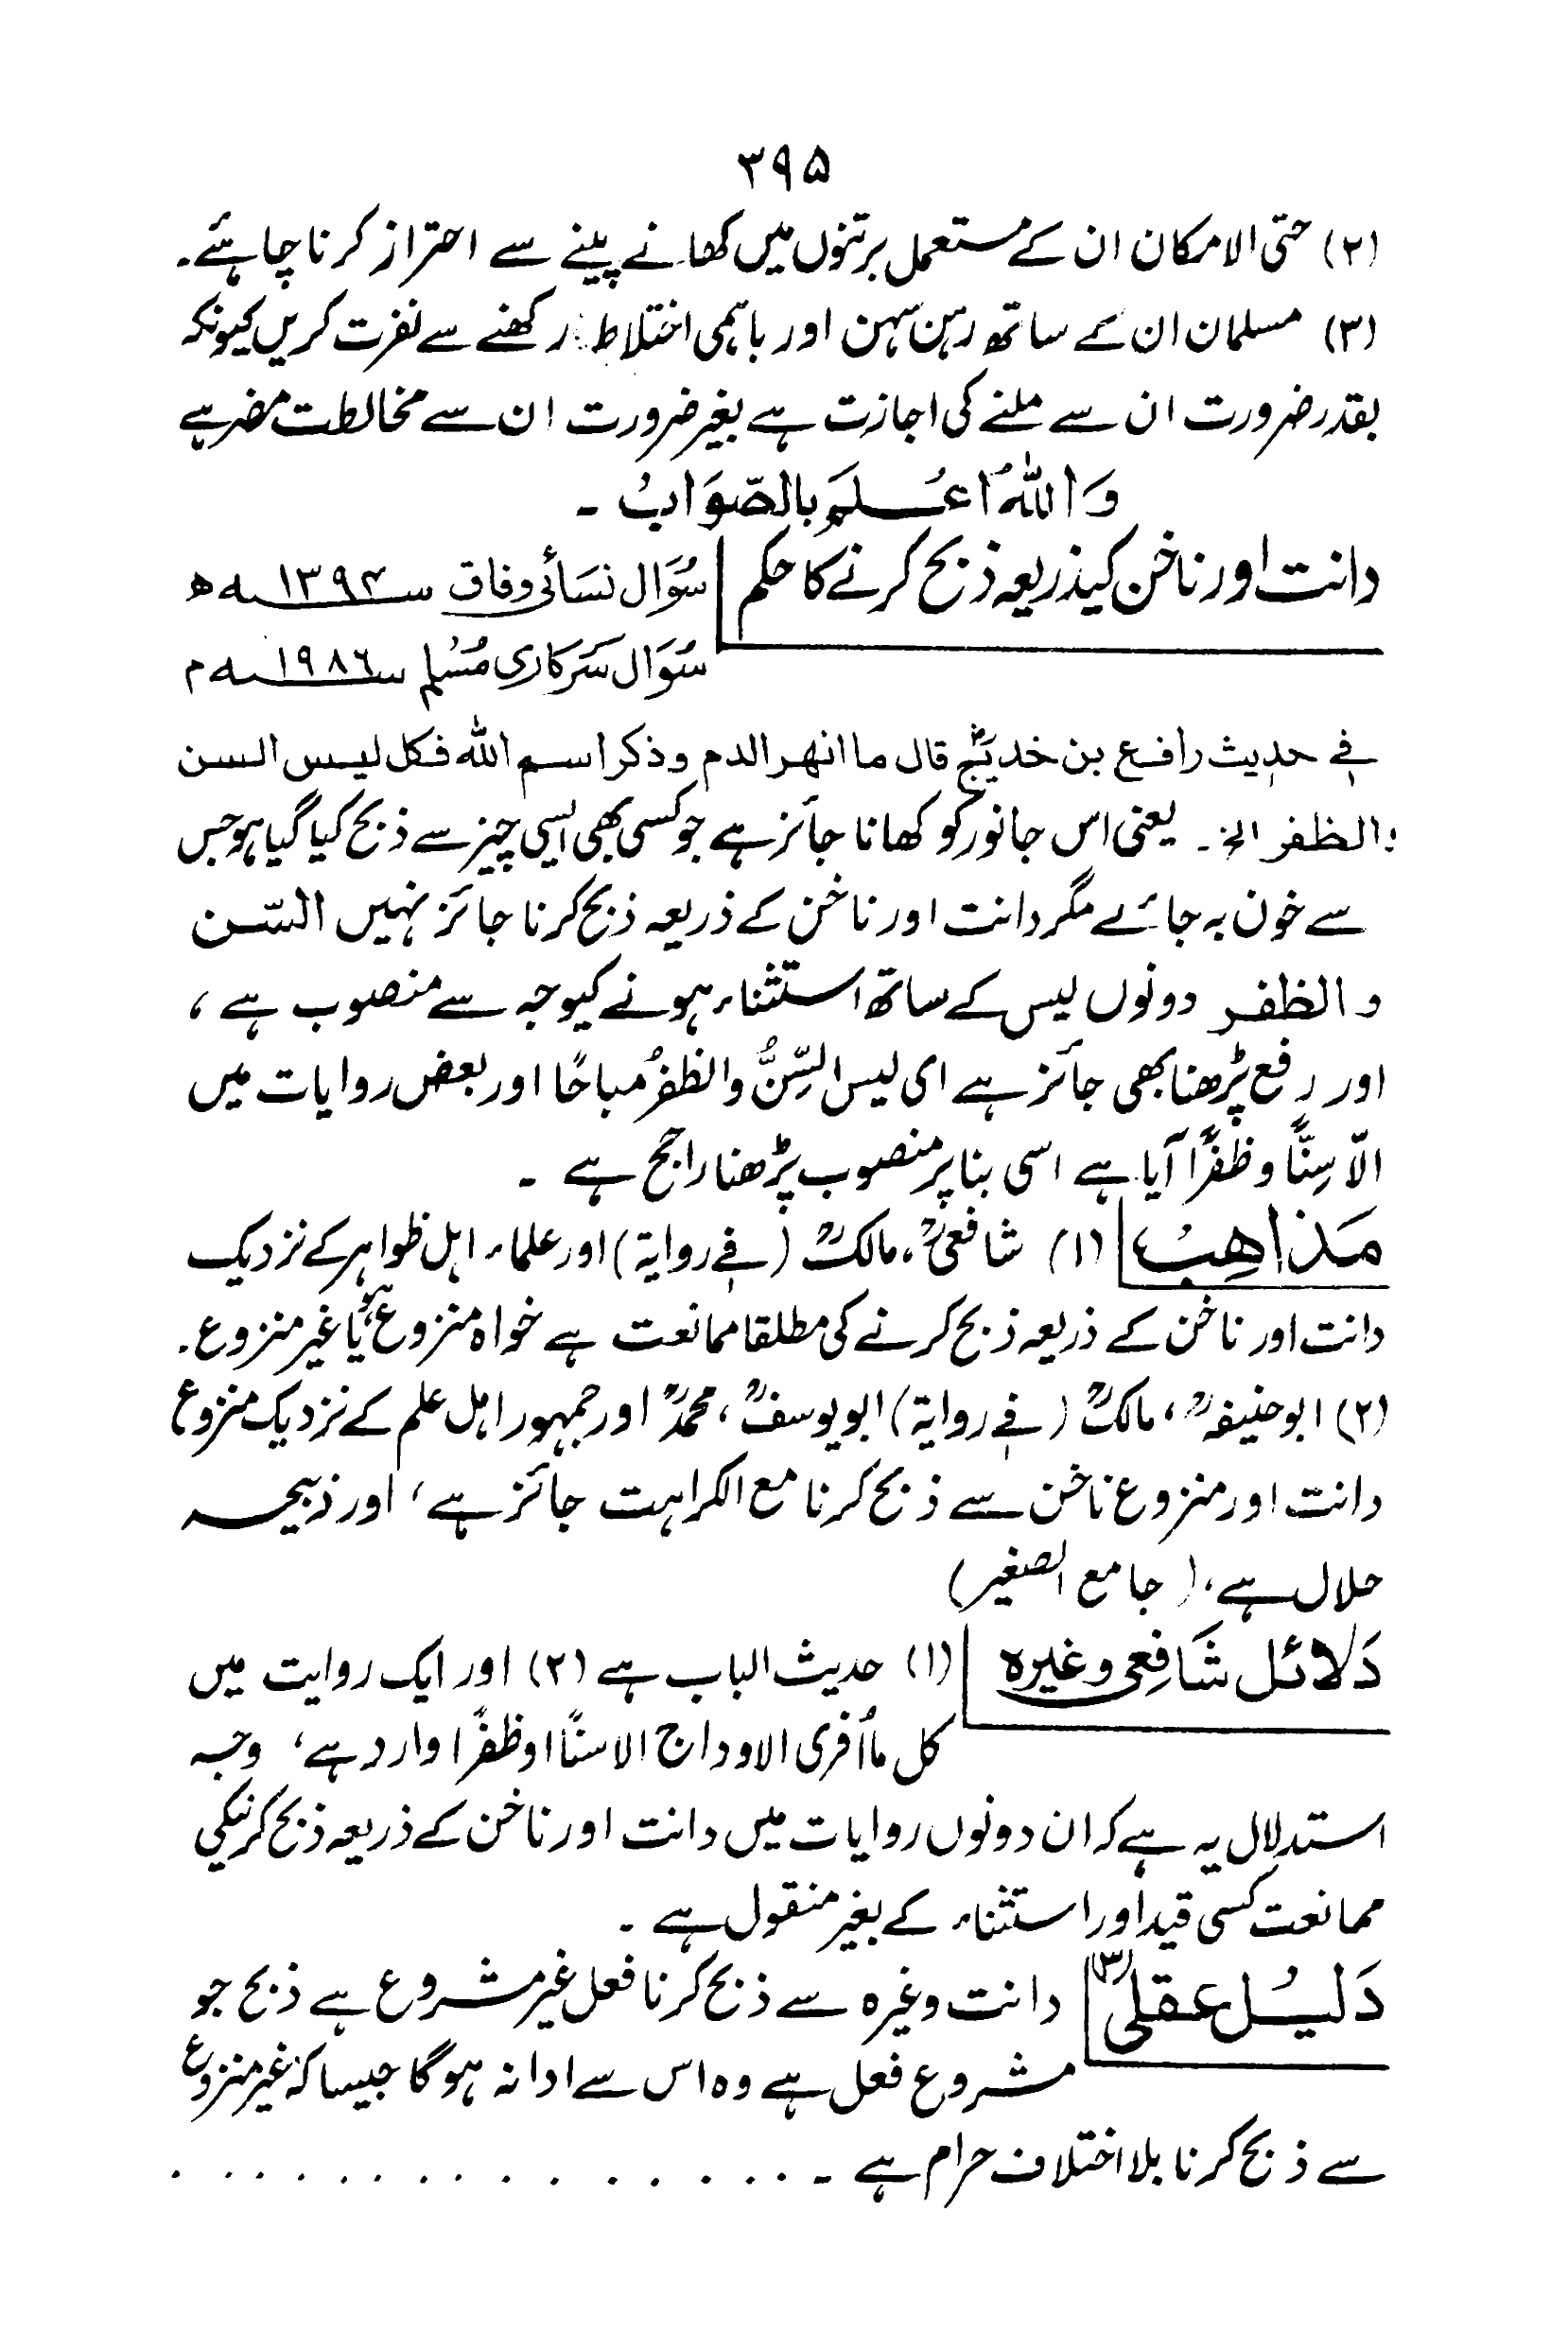 ۳۹۵
(۲) حتی الامکان ان کے مستعمل برتنوں میں کھانے پینے سے احتراز کرنا چاہئے۔
(۳) مسلمان ان کے ساتھ رہن سہن اور باہمی اختلاط رکھنے سے نفرت کریں کیونکہ
بقدر ضرورت ان سے ملنے کی اجازت ہے بغیر ضرورت ان سے مخالطت مضر ہے
وَاللّٰہُ اَعْلَمُ بِالصَّوَابُ ۔
دانت اور ناخن کیذریعہ ذبح کرنے کا حکم
سُوَال نسَائی وفاق سنہ ۱۳۹۴ھ
سُوَال سَرکاری مُسْلِم سنہ ۱۹۸۶م
فی حدیث رافع بن خدیجؓ قال ما انھر الدم وذکر اسم اللہ فکل لیس السن
والظفر الخ ۔ یعنی اس جانور کو کھانا جائز ہے جو کسی بھی ایسی چیز سے ذبح کیا گیا ہو جس
سے خون بہ جائے مگر دانت اور ناخن کے ذریعہ ذبح کرنا جائز نہیں السّن
والظفر دونوں لیس کے ساتھ استثناء ہونے کیوجہ سے منصوب ہے ،
اور رفع پڑھنا بھی جائز ہے ای لیس السِّنُّ والظفرُ مباحًا اور بعض روایات میں
الّا سِنًّا وظفرًا آیا ہے اسی بنا پر منصوب پڑھنا راجح ہے ۔
مَذاھِبُ (۱) شافعیؒ، مالکؒ (فی روایۃ) اور علماء اہل ظواہر کے نزدیک
دانت اور ناخن کے ذریعہ ذبح کرنے کی مطلقا ممانعت ہے خواہ منزوع ہو یا غیر منزوع۔
(۲) ابو حنیفہؒ، مالکؒ (فی روایۃ) ابو یوسفؒ، محمدؒ اور جمہور اہل علم کے نزدیک منزوع
دانت اور منزوع ناخن سے ذبح کرنا مع الکراہت جائز ہے ، اور ذبیحہ
حلال ہے، (جامع الصغیر)
دَلائل شَافِعی وغیرہ (۱) حدیث الباب ہے (۲) اور ایک روایت میں
کل ما أفری الاوداج الا سنًّا او ظفرًا وارد ہے ، وجہ
استدلال یہ ہے کہ ان دونوں روایات میں دانت اور ناخن کے ذریعہ ذبح کرنیکی
ممانعت کسی قید اور استثناء کے بغیر منقول ہے ۔
دَلیُل عقلی (۳) دانت وغیرہ سے ذبح کرنا فعل غیر مشروع ہے ذبح جو
مشروع فعل ہے وہ اس سے ادا نہ ہوگا جیسا کہ غیر منزوع
سے ذبح کرنا بلا اختلاف حرام ہے ۔ . . . . . . . . . . . . . .